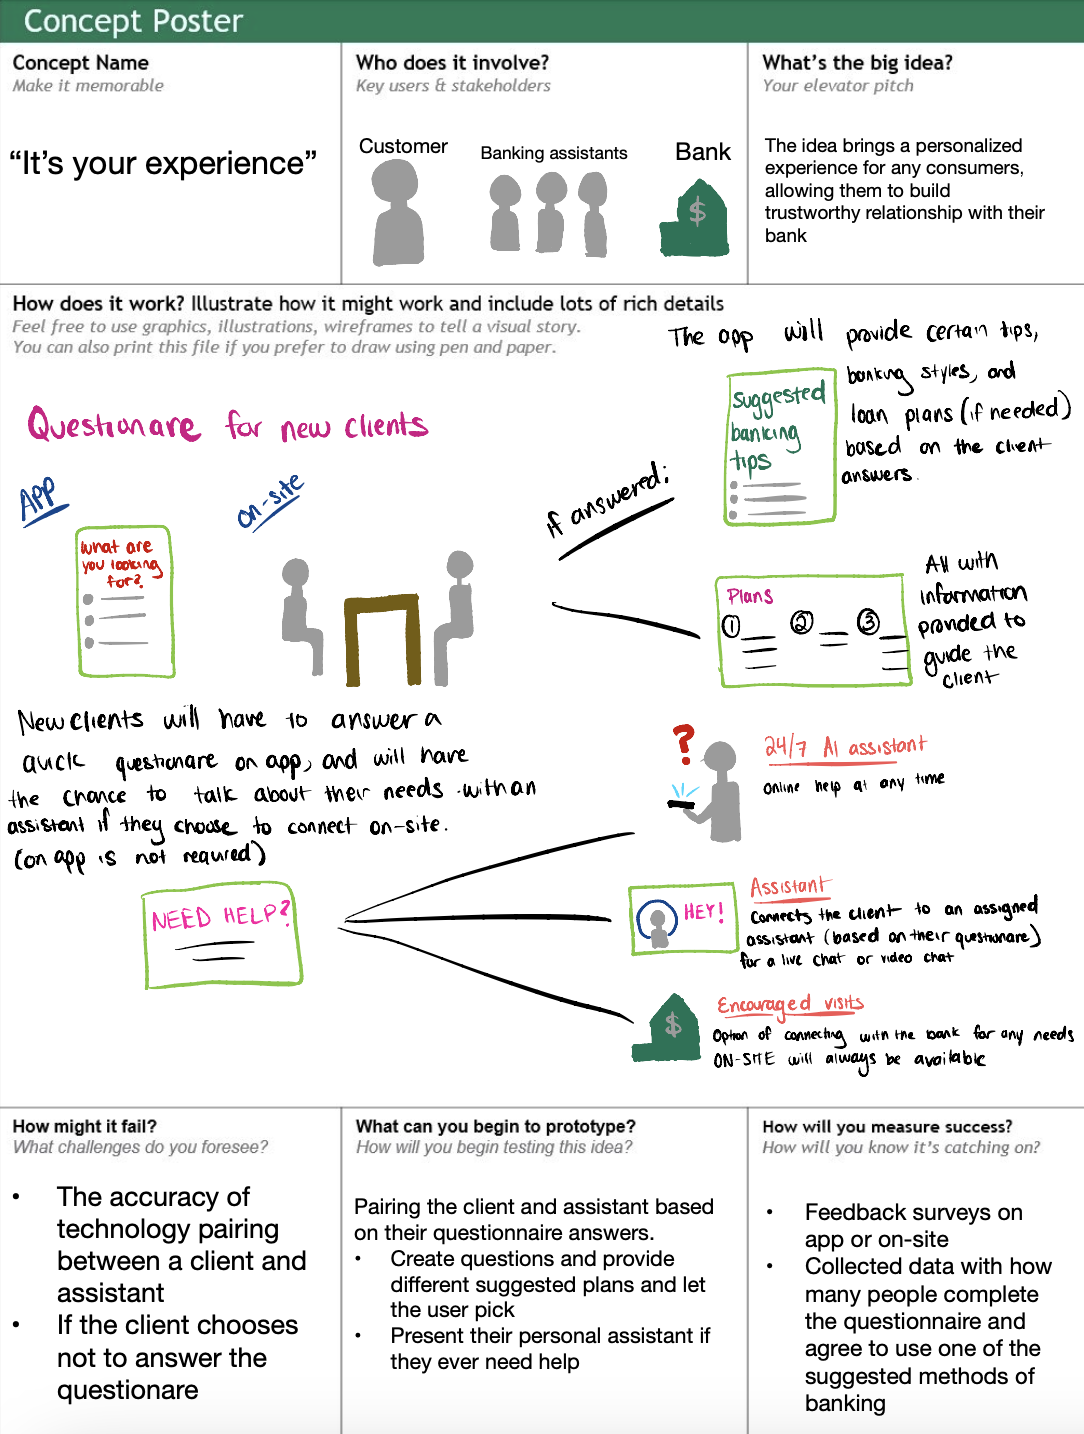 Concept Poster
Concept Name
Make it memorable
“It’s your experience”
Who does it involve?
Key users & stakeholders
Customer
Banking assistants
Bank
$
What’s the big idea?
Your elevator pitch
The idea brings a personalized
experience for any consumers,
allowing them to build
trustworthy relationship with their
bank
How does it work? Illustrate how it might work and include lots of rich details
Feel free to use graphics, illustrations, wireframes to tell a visual story.
You can also print this file if you prefer to draw using pen and paper.
Questionare for new clients
APP
on-site
What are
you looking
for?
New clients will have to answer a
quick questionare on app, and will have
the chance to talk about their needs with an
assistant if they choose to connect on-site.
(on app is not required)
If answered:
The app will provide certain tips,
banking styles, and
loan plans (if needed)
based on the client
answers.
Suggested
banking
tips
Plans
1 2 3
All with
information
provided to
guide the
client
NEED HELP?
?
24/7 AI assistant
online help at any time
HEY!
Assistant
Connects the client to an assigned
assistant (based on their questionare)
for a live chat or video chat
$
Encouraged visits
Option of connecting with the bank for any needs
ON-SITE will always be available
How might it fail?
What challenges do you foresee?
• The accuracy of
technology pairing
between a client and
assistant
• If the client chooses
not to answer the
questionare
What can you begin to prototype?
How will you begin testing this idea?
Pairing the client and assistant based
on their questionnaire answers.
• Create questions and provide
different suggested plans and let
the user pick
• Present their personal assistant if
they ever need help
How will you measure success?
How will you know it’s catching on?
• Feedback surveys on
app or on-site
• Collected data with how
many people complete
the questionnaire and
agree to use one of the
suggested methods of
banking